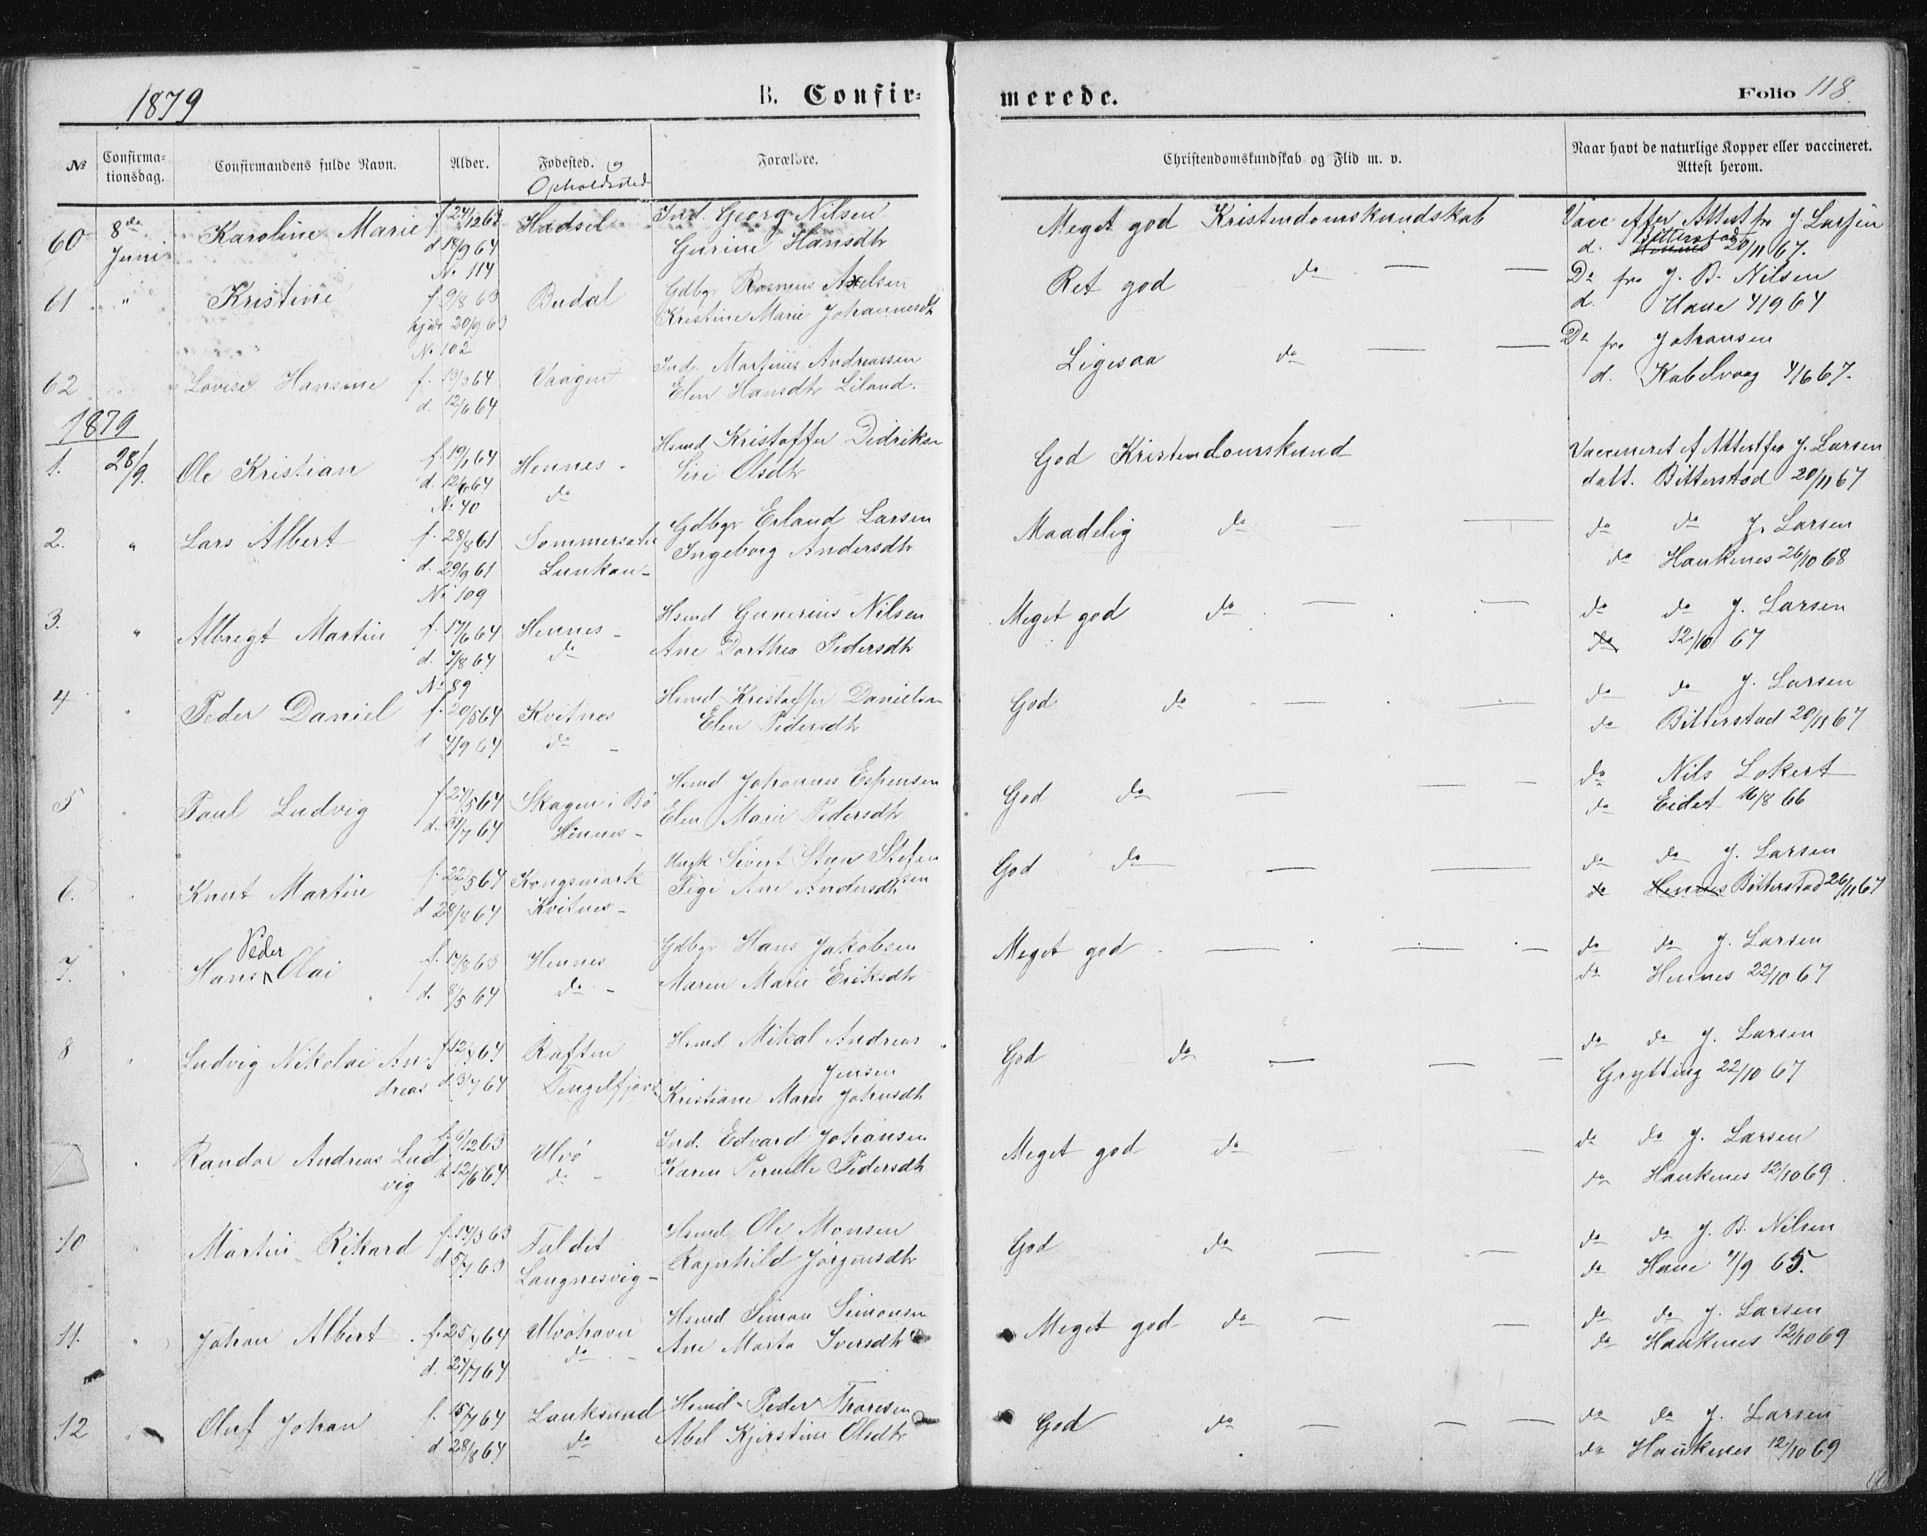 1879 B. Confir= merede. Folio 118
№ Confirma=tionsdag. Confirmandens fulde Navn. Alder. Fødested. og Opholdssted Forældre. Christendomskundskab og Flid m. v. Naar havt de naturlige Kopper eller vaccineret. Attest herom.
60 8de Juni Karoline Marie f 27/12 63 Hadsel Ind. Georg Nilsen Meget god Kristendomskundskab Vacc efter Attest fr J. Larsen
d 18/9 64 Gurine Hansdtr d. Bitterstad 20/11 67.
No 114
61 " Kristine f. 9/8 63 Budal Gdbgr Rasmus Axelsen Ret god do — — Do fra J. B. Nilsen
20/9 63 Kristine Marie Johannesdtr d. Hane 4/9 64
No 102
62 Lovise Hansine f. 19/3 64 Vaagen Ind. Martinus Andreassen Ligesaa do — — Do fra Johansen
d 12/6 64 Elen Hansdtr Liland. d. Kabelvaag 4/6 67.
1879
1. 28/9. Ole Kristian f. 19/1 64 Hennes - Hsmd Kristoffer Didriksen God Kristendomskund Vaccineret ef Attest fra J. Larsen
d. 12/6 64 do Siri Olsdtr datt. Bitterstad 20/11 67
No 40
2. " Lars Albert f. 28/8 61 Gdbgr Erland Larsen Maadelig do — — do do J. Larsen
d. 29/9 61 Lunkan - Ingeborg Andersdtr do Haukenes 26/10 68
No 109
3. " Albregt Martin f. 17/6 64 Hennes - Hsmd Gunerius Nilsen Meget god do — — do do J. Larsen
d. 7/8 64 do Ane Dorthea Pedersdtr do 12/10 67
No 89
4 " Peder Daniel f. 20/5 64 Kvitnes Hsmd Kristoffer Danielsen God do — — do do J. Larsen
d 4/9 64 do - Elen Pedersdtr do Bitterstad 20/11 67
5 Paul Ludvig f 27/5 64 Skagen i Bø Hsmd Johannes Espensen God do — — do Nils Lokert
d. 31/7 64 Hennes - Elen Marie Pedersdtr do Eidet 16/8 66
6. Knut Martin f. 22/5 64 Kongsmark Ungk Sivert Steen Stefensen God do — — do do J. Larsen
d 28/8 64 Kvitnes - Pige Ane Andersdtr do Hennes Bitterstad 26/11 67
7. Hans Peder Olai f. 17/8 63 Hennes Gdbgr Hans Jakobsen Meget god — — do do J. Larsen
d. 8/5 64 do - Maren Marie Eriksdtr do Hennes 22/10 67
8 Ludvig Nikolai Andreas Raften Hsmd Mikal Andreas Jensen God do — — do do J. Larsen
d 3/7 64 Tengelfjord Kristiane Marie Johnsdtr Grytting 22/10 67
Randor Andreas Ludvig f. 9/12 63 Ulvø Ind. Edvard Johansen Meget god do — — do do J. Larsen
d 12/6 64 do - Karen Pernille Pedersdtr do Haukenes 12/10 69
10 Martin Rikard f. 17/3 63 Faldet Hsmd Ole Monsen God do — — do do J. B. Nilsen
d 5/7 63 Langnesvig - Ragnhild Jørgensdtr do Hane 7/9 65.
11. Johan Albert f. 25/4 64 Ulvøhavn Hsmd Simon Simonsen Meget god do — — do do J. Larsen
d. 24/7 64 do - Ane Marta Iversdtr do Haukenes 12/10 69
12 " Oluf Johan f. 15/7 64 Lauksund Hsmd Peder Thoresen God do — — do do J. Larsen
d 28/8 64 do Abel Kjerstine Olsdtr do Haukenes 12/10 69